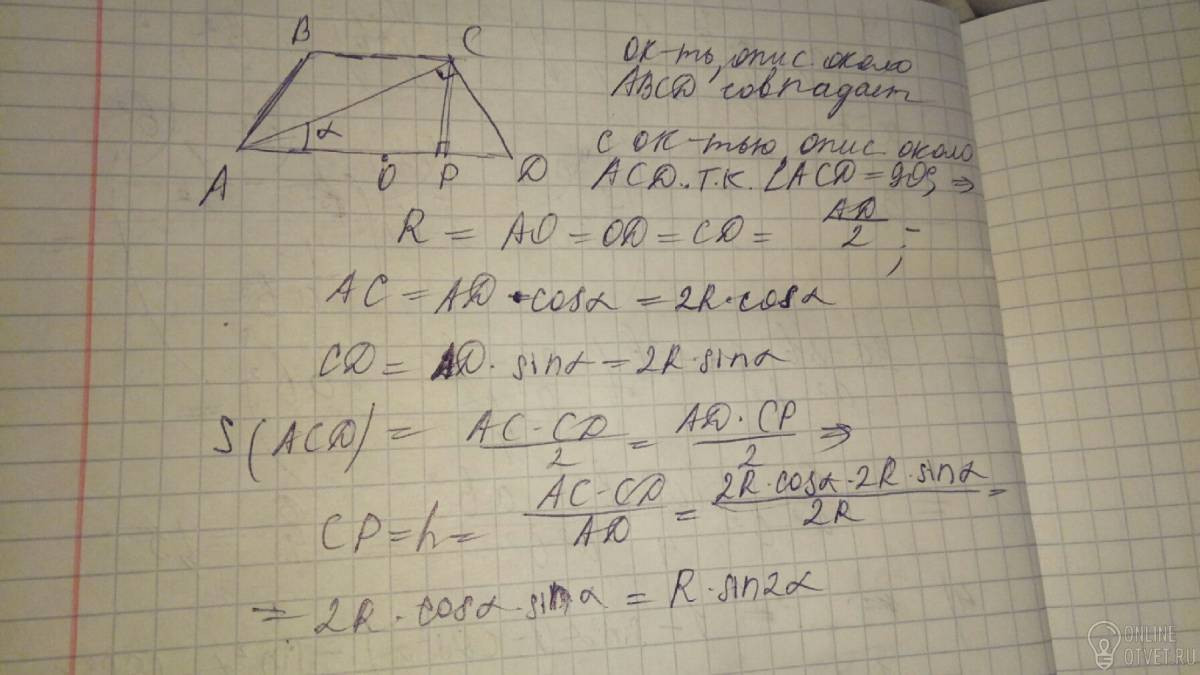 B C
α
A O P D
ок-ть, опис. около
ABCD совпадает
с ок-тью, опис около
ACD. т.к. ∠ACD = 90°, ⇒
R = AO = OD = CD = AD/2 ;
AC = AD · cosα = 2R · cosα
CD = AD · sinα = 2R · sinα
S(ACD) = AC · CD / 2 = AD · CP / 2 ⇒
CP = h = AC · CD / AD = 2R · cosα · 2R · sinα / 2R =
= 2R · cosα · sinα = R · sin2α
ONLINE
OTVET.RU